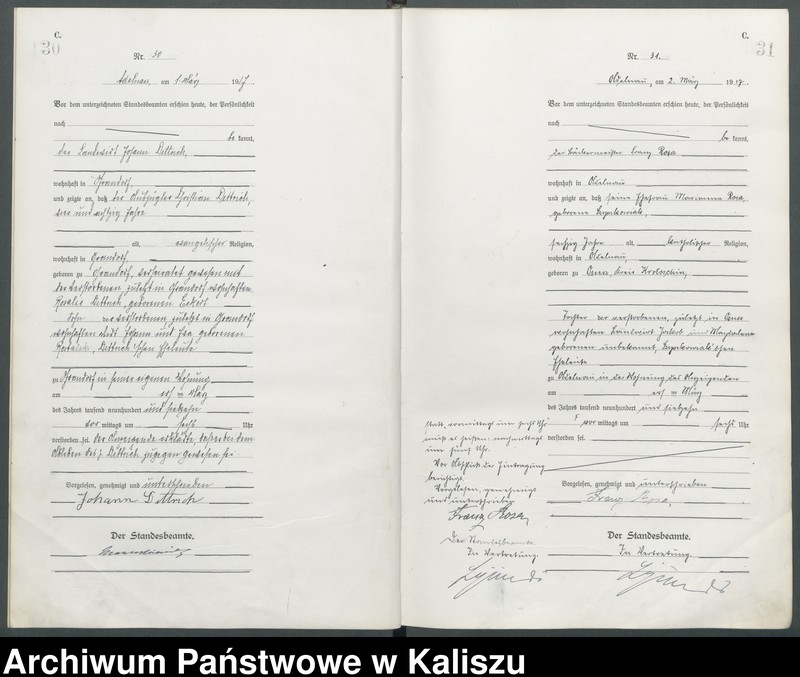 C.
30
Nr. 30
Adelnau, am 1 März 1917.
Vor dem unterzeichneten Standesbeamten erschien heute, der Persönlichkeit
nach
be kannt,
der Landwirt Johann Dittrich,
wohnhaft in Grandorf,
und zeigte an, daß der Christian Dittrich,
Jahre
alt, evangelischer Religion,
wohnhaft in Grandorf,
geboren zu Grandorf, verheiratet gewesen mit
der verstorbenen, zuletzt in Grandorf wohnhaften
Rosalie Dittrich, geborenen Eckert
Sohn der verstorbenen, zuletzt in Grandorf
wohnhaften Johann und geborenen
Dittrich'schen Eheleute
zu Grandorf in seiner eigenen Wohnung
am März
des Jahres tausend neunhundert und siebzehn
vor mittags um sechs Uhr
verstorben sei. Der Anzeigende erklärte, daß er bei dem
Ableben des Dittrich zugegen gewesen sei
Vorgelesen, genehmigt und unterschrieben
Johann Dittrich
Der Standesbeamte.
C.
31
Nr. 31.
Adelnau, am 2. März 1917.
Vor dem unterzeichneten Standesbeamten erschien heute, der Persönlichkeit
nach
be kannt,
der Bäckermeister Franz Rosa
wohnhaft in Adelnau
und zeigte an, daß seine Ehefrau Marianna Rosa,
geborene
sechzig Jahre alt, katholischer Religion,
wohnhaft in Adelnau,
geboren zu Kreis Krotoschin,
Tochter der verstorbenen, zuletzt in
wohnhaften Landwirt und Magdalena
geborenen unbekannt,
Eheleute
zu Adelnau in der Wohnung des Anzeigenden
am März
des Jahres tausend neunhundert und siebzehn
vor mittags um sechs Uhr
verstorben sei.
Statt vormittags um sechs Uhr
muß es heißen nachmittags
um fünf Uhr.
Vor Abschluß der Eintragung
berichtigt.
Vorgelesen, genehmigt
und unterschrieben
Franz Rosa,
Der Standesbeamte
In Vertretung.
Vorgelesen, genehmigt und unterschrieben
Franz Rosa,
Der Standesbeamte.
In Vertretung.
Archiwum Państwowe w Kaliszu